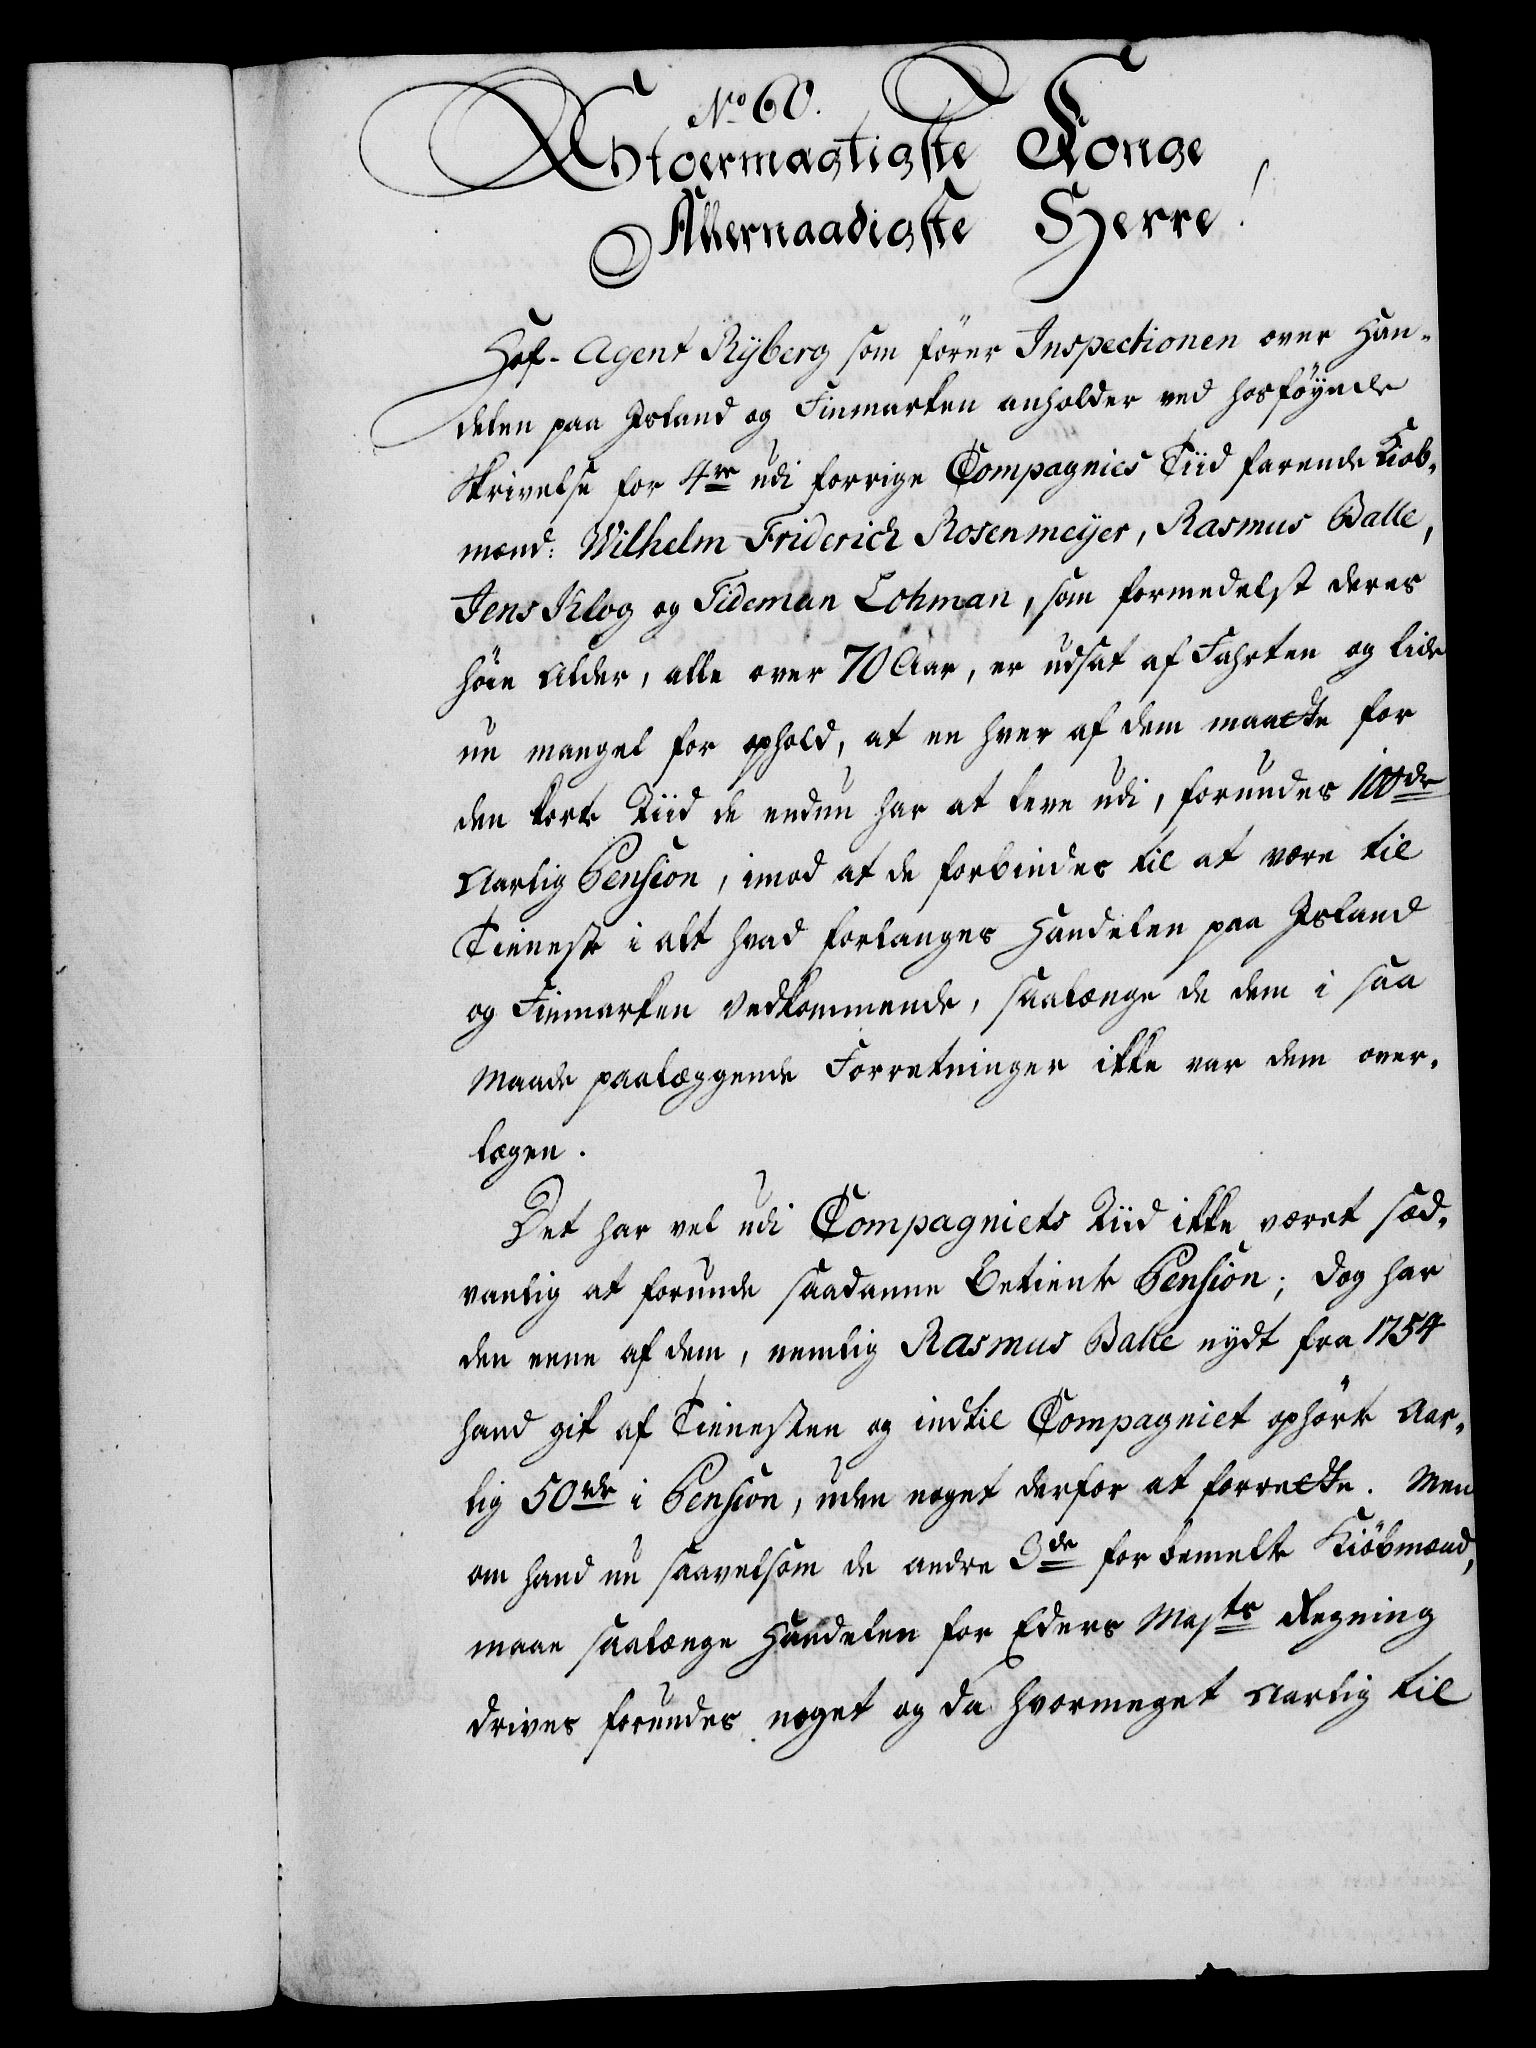 No 60.
Stoermægtigste Konge
Allernaadigste Herre!
Hof-Agent Rÿberg som fører Inspectionen over Han-
delen paa Island og Finmarken anholder ved hosføÿede
Skrivelse for 4re udi forrige Compagnies Tiid farende Kiøb-
mænd: Wilhelm Friderich Rosenmeÿer, Rasmus Balle,
Jens Klog og Tideman Lohman, som formedelst deres
høie Alder, alle over 70 Aar, er udsat af Fahrten og lide
nu mangel for ophold, at en hver af dem maatte for
den korte Tiid de endnu har at leve udi, forundes 100 dr
Aarlig Pension, imod at de forbindes til at være til
Tieneste i alt hvad forlanges Handelen paa Island
og Finmarken vedkommende, saalænge de dem i saa
Maade paalæggende Forretninger ikke var dem over-
lægen.
Det har vel udi Compagniets Tiid ikke været sæd-
vanlig at forunde saadanne Betiente Pension; dog har
den eene af dem, nemlig Rasmus Balle nÿdt fra 1754
hand gik af Tienesten og indtil Compagniet ophørte Aar-
lig 50 rdr i Pension, uden noget derfor at forrette. Men
om hand nu saavelsom de andre 3de forbemelte Kiøbmænd,
maae saalænge Handelen for Eders Majts Regning
drives forundes noget og da hvormeget Aarlig til